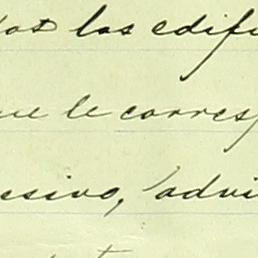 los edifi
ue le corres
esivo, advi